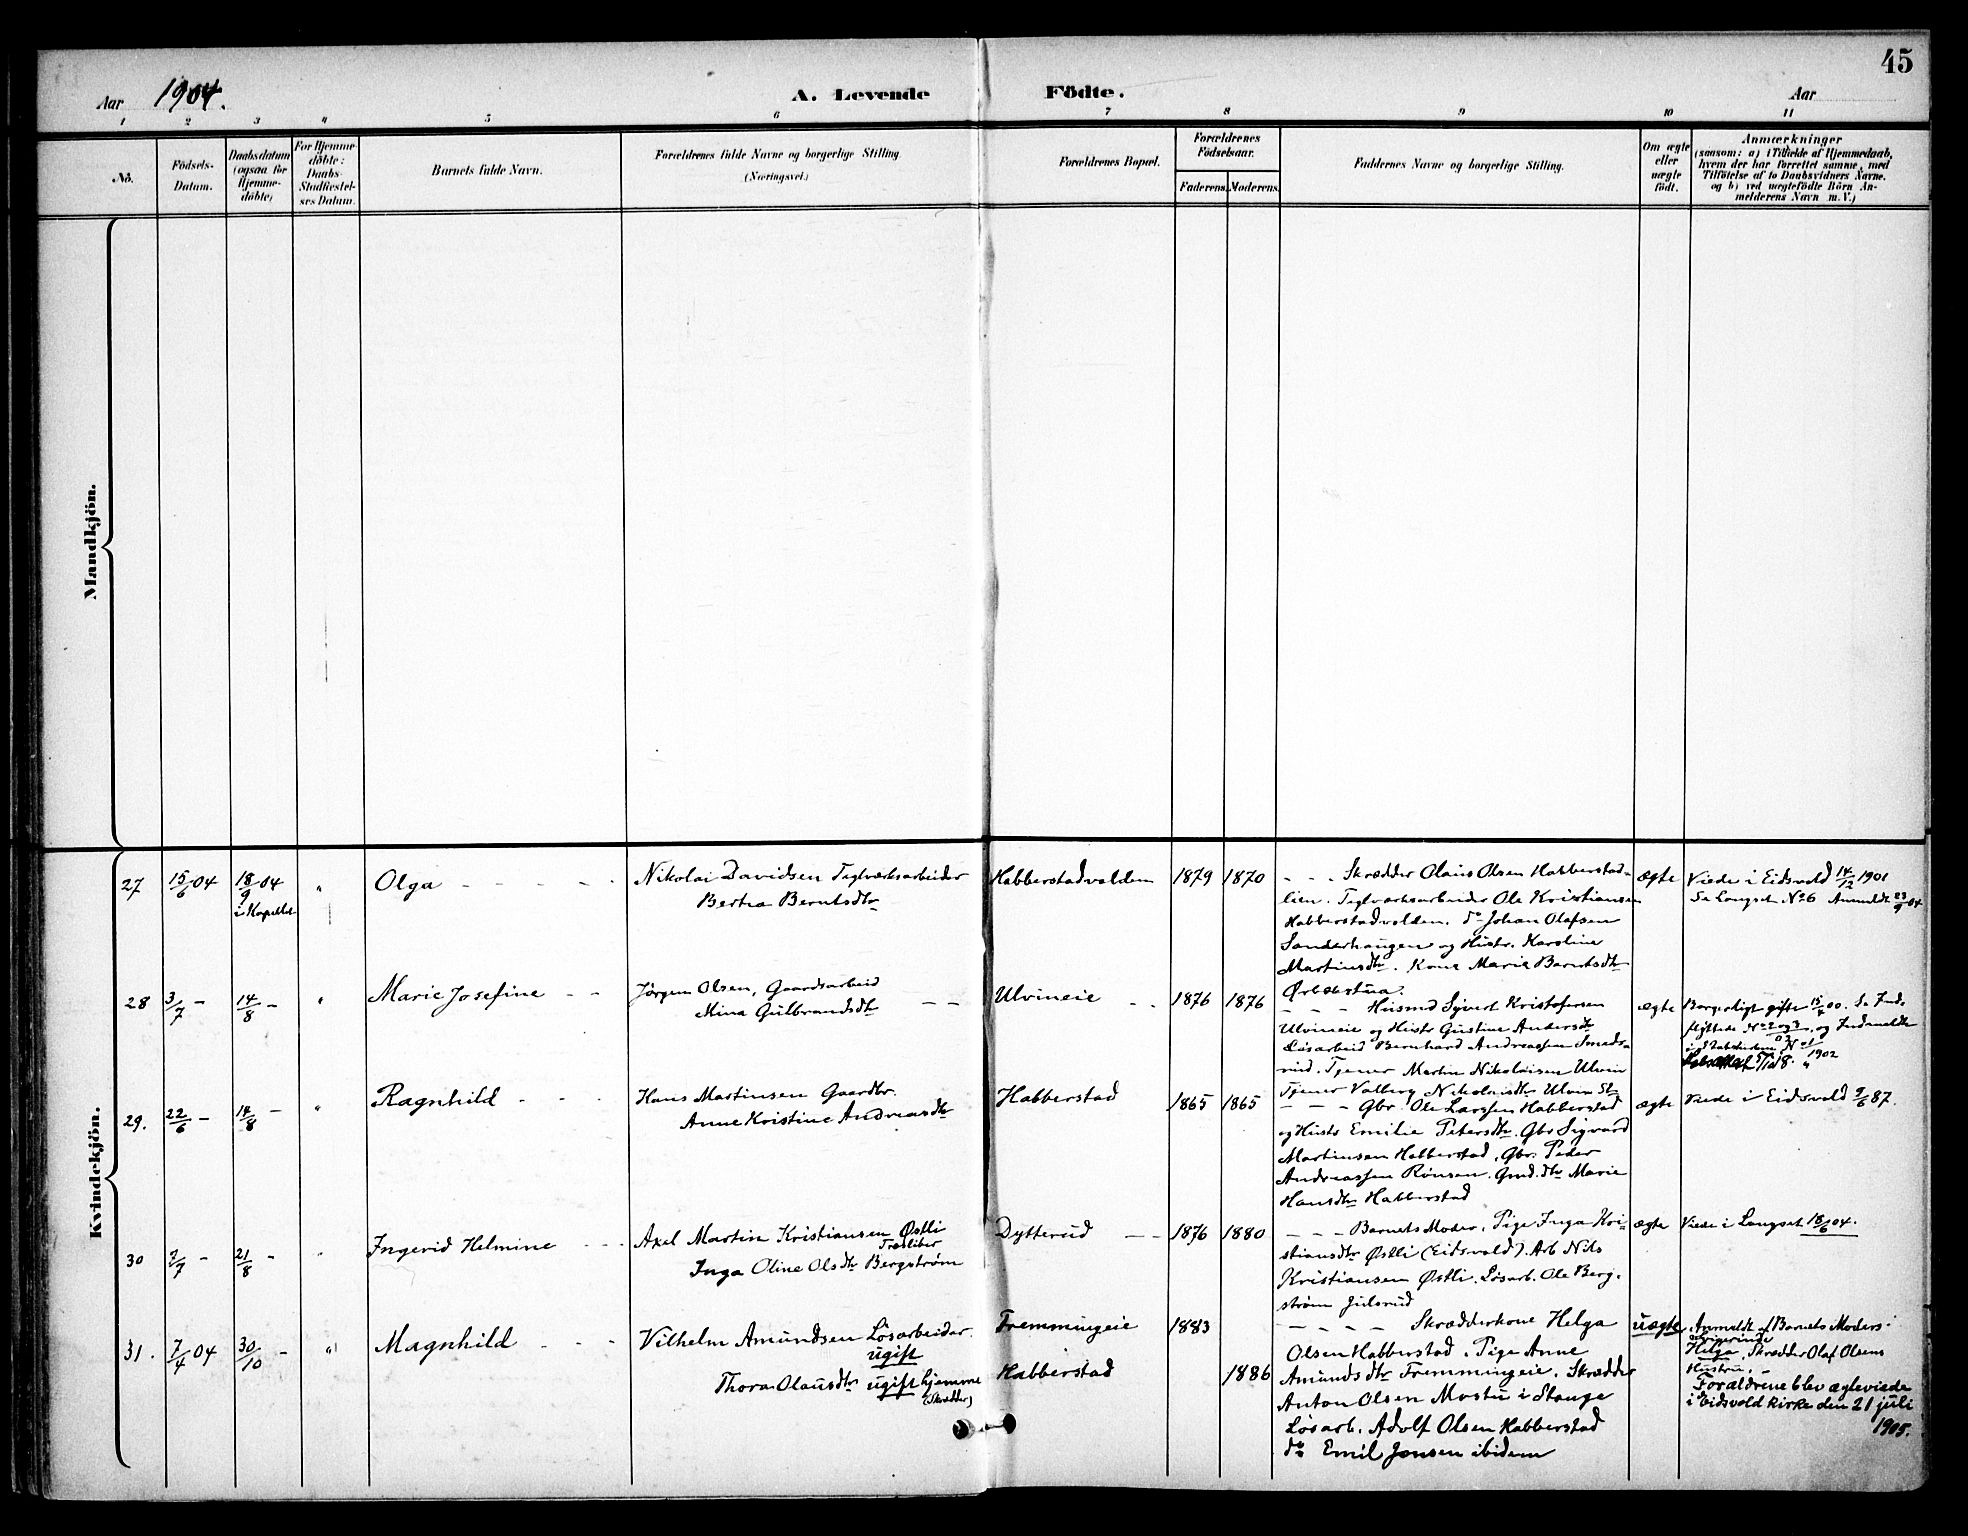 45
Aar 1904. A. Levende Födte. Aar
1 2 3 4 5 6 7 8 9 10 11
No.
Födsels-
Datum.
Daabsdatum
(ogsaa for
Hjemme-
döbte)
For Hjemme-
döbte:
Daabs-
Stadfæstel-
ses Datum.
Barnets fulde Navn.
Forældrenes fulde Navne og borgerlige Stilling
(Næringsvei.)
Forældrenes Bopæl.
Forældrenes
Födselsaar.
Faderens. Moderens.
Faddernes Navne og borgerlige Stilling.
Om ægte
eller
uægte
födt.
Anmærkninger
(saasom: a) i Tilfælde af Hjemmedaab,
hvem der har forrettet samme, med
Tilföielse af to Daabsvidners Navne.
og b) ved uægtefödte Börn An-
melderens Navn m. V.)
Mandkjön.
Kvindekjön.
27 15/6 04 18/9 04 " Olga - - - - -
i Kapellet
Nikolai Davidsen Teglværksarbeider
Bertha Berntsdtr
Habberstadvolden 1879 1870
- - - Skrædder Olaus Olsen Habberstad-
lien. Teglværksarbeider Ole Kristiansen
Habberstadvolden. do Johan Olafsen
Sanderhaugen og Hustr. Karoline
Martinsdtr. Kone Marie Berntsdtr
Ørbækstua.
ægte
Viede i Eidsvold 14/12 1901
Se Langset No 6 Anmeldt 23/9 04
28 3/7 - 14/8 - " Marie Josefine - -
Jörgen Olsen, Gaardsarbeid
Mina Gulbrandsdtr - -
Ulvineie - - 1876 1876
- - - Husmd Syvert Kristofersen
Ulvineie og Hustr Gustine Andersdtr
Løsarbeid Bernhard Andreassen Smeds-
rud. Tjener Martin Nikolaisen Ulvin
Tjener Valborg Nikolaisdtr Ulvin
ægte
Borgerligt gifte 15/4 00. Se Ind-
flyttede No 2 og 3, og Indmeldte
i Statskirken No 1
1902
29. 22/6 - 14/8 - " Ragnhild - - -
Hans Martinsen Gaardbr.
Anne Kristine Andreasdtr
Habberstad 1865 1865
- - - Gbr. Ole Larssen Habberstad
og Hustr Emilie Petersdtr. Gbr Sigvard
Martinsen Habberstad, Gbr. Peder
Andreassen Rönsen. Gmd.dtr Marie
Hansdtr Habberstad
ægte
Viede i Eidsvold 9/6 87.
30 7/7 - 21/8 - " Ingerid Helmine - - -
Axel Martin Kristiansen Østli
Træsliber
Inga Oline Olsdtr Bergstrøm
Dytterud - - 1876 1880
- - - Barnets Moder, Pige Inga Kri-
stiansdtr Østli (Eidsvold). Arb Nils
Kristiansen Østli. Løsarb. Ole Berg-
strøm Julsrud
ægte
Viede i Langset 18/6 04.
31. 7/4 04 30/10 - " Magnhild - - -
Vilhelm Amundsen Løsarbeider
ugift
Thora Olausdtr ugift hjemme
(Skrædder)
Fremmingeie 1883
Habberstad 1886
- - - - Skrædderkone Helga
Olsen Habberstad. Pige Anne
Amundsdtr Fremmingeie. Skrædder
Anton Olsen Mostu i Stange
Løsarb. Adolf Olsen Habberstad
do Emil Jensen ibidem
uægte
Anmeldt af Barnets Moders
Svigerinde
Helga, Skrædder Olaf Olsens
Hustru. -
Forældrene blev ægteviede
i Eidsvold kirke den 21 juli
1905.